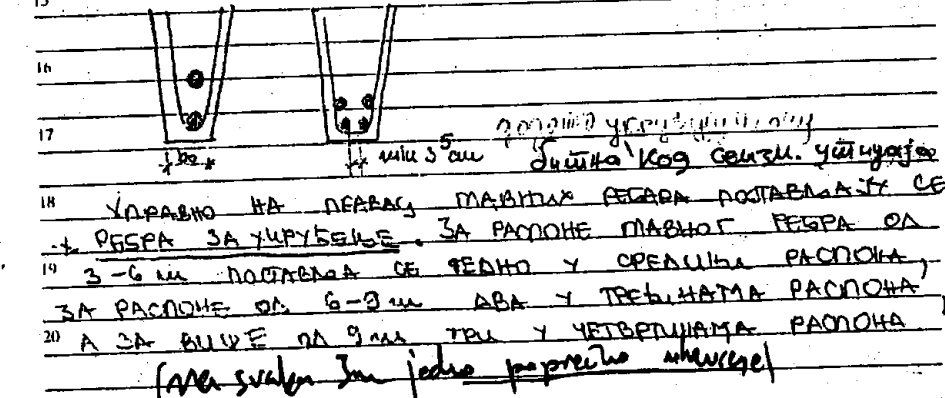 15
16
17
min 3⁵ cm
битна код сеизм. утицаја
18 УПРАВНО НА ПРАВАЦ ГЛАВНИХ РЕБАРА ПОСТАВЉАЈУ СЕ
РЕБРА ЗА УКРУЋЕЊЕ. ЗА РАСПОНЕ ГЛАВНОГ РЕБРА ОД
19 3-6 m ПОСТАВЉА СЕ ЈЕДНО У СРЕДИНИ РАСПОНА,
ЗА РАСПОНЕ ОД 6-9 m ДВА У ТРЕЋИНАМА РАСПОНА,
20 А ЗА ВИШЕ ОД 9 m ТРИ У ЧЕТВРТИНАМА РАСПОНА
(na svaka 3m jedno poprečno